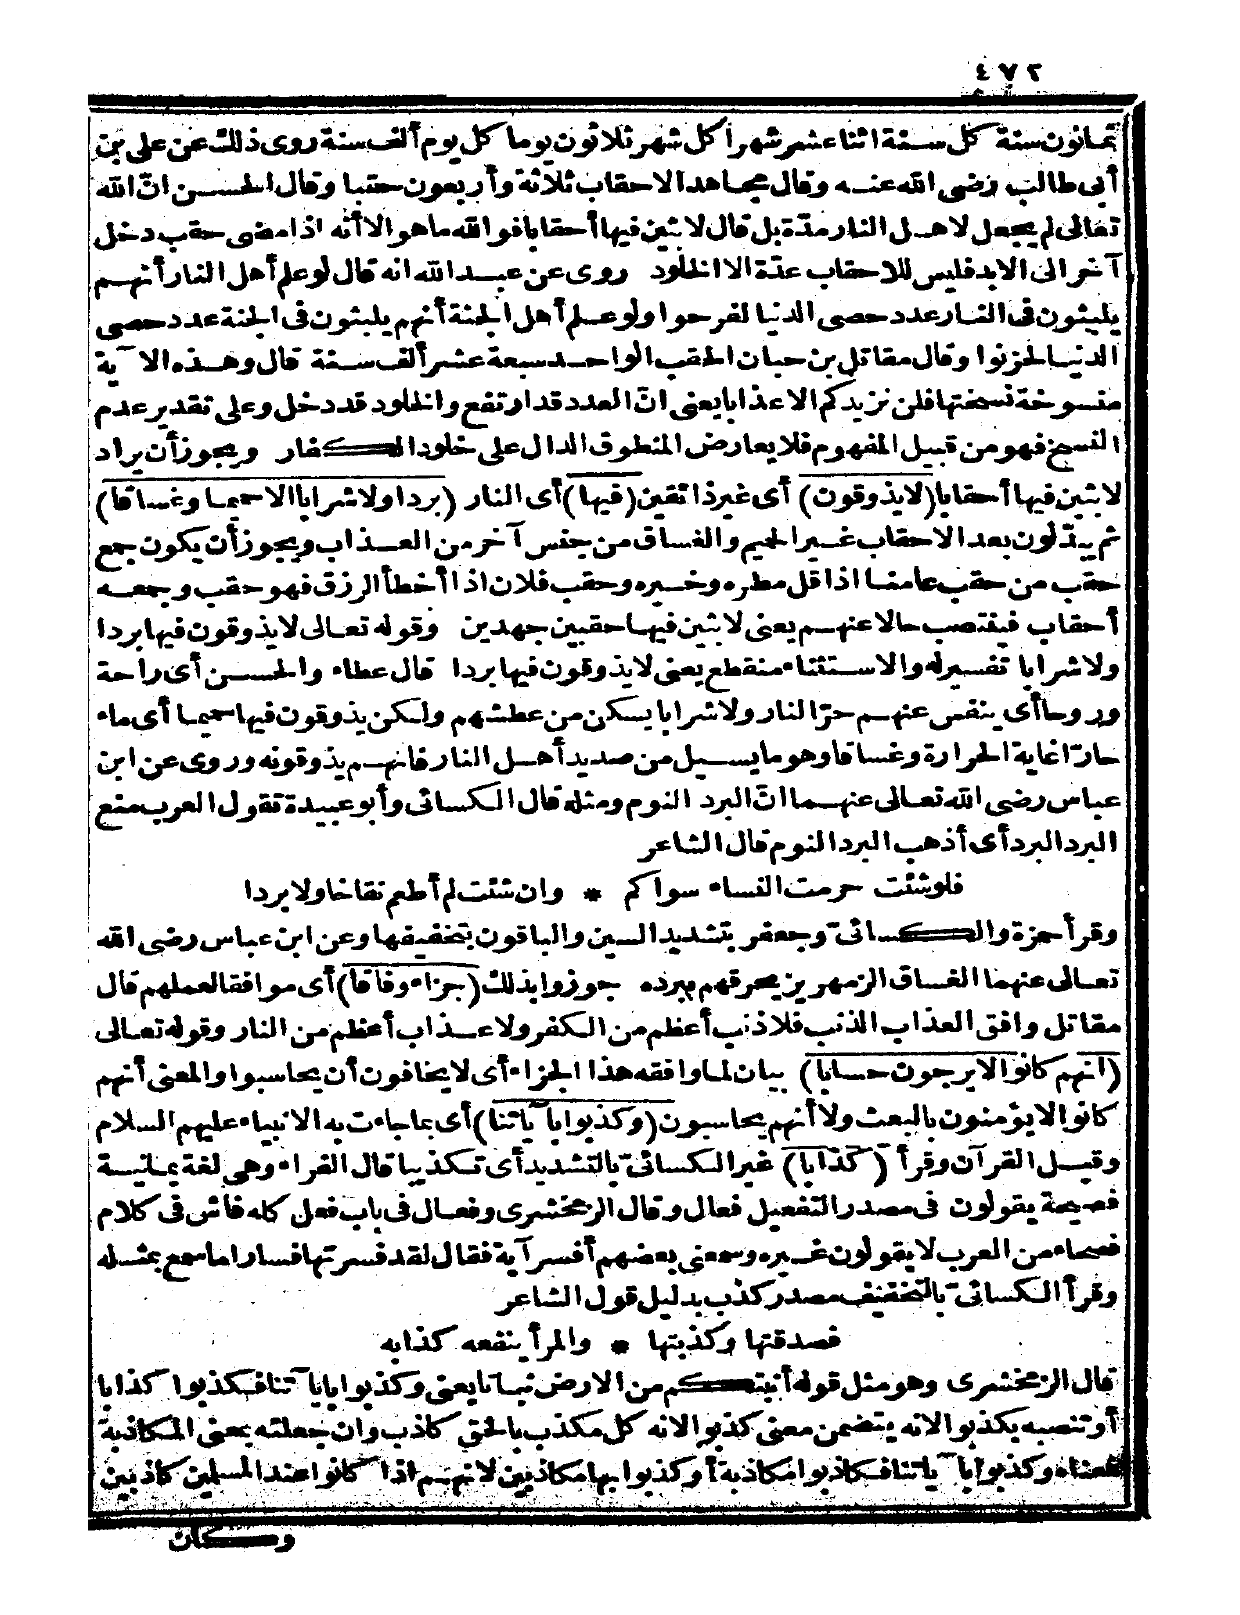 ٤٧٢
ثمانون سنة كل سنة اثنا عشر شهرا كل شهر ثلاثون يوما كل يوم ألف سنة روى ذلك عن على بن
أبى طالب رضى الله عنه وقال مجاهد الاحقاب ثلاثة وأربعون حقبا وقال الحسن انّ الله
تعالى لم يجعل لاهل النار مدّة بل قال لابثين فيها أحقابا فوالله ما هو الا أنه اذا مضى حقب دخل
آخر الى الابد فليس للاحقاب عدّة الا الخلود روى عن عبد الله انه قال لو علم أهل النار أنهم
يلبثون فى النار عدد حصى الدنيا لفرحوا ولو علم أهل الجنة أنهم يلبثون فى الجنة عدد حصى
الدنيا لحزنوا وقال مقاتل بن حبان الحقب الواحد سبعة عشر ألف سنة قال وهذه الا آية
منسوخة نسختها فلن نزيدكم الا عذابا يعنى انّ العدد قد ارتفع والخلود قد دخل وعلى تقدير عدم
النسخ فهو من قبيل المفهوم فلا يعارض المنطوق الدال على خلود الكفار ويجوز أن يراد
لابثين فيها أحقابا (لا يذوقون) أى غير ذائقين (فيها) أى النار (بردا ولا شرابا الا حميما وغساقا)
ثم يبدّلون بعد الاحقاب غير الحميم والغساق من جنس آخر من العذاب ويجوز أن يكون جمع
حقب من حقب عامنا اذا قل مطره وخيره وحقب فلان اذا أخطأ الرزق فهو حقب وجمعه
أحقاب فينتصب حالا عنهم يعنى لابثين فيها حقبين جهدين وقوله تعالى لا يذوقون فيها بردا
ولا شرابا تفسير له والاستثناء منقطع يعنى لا يذوقون فيها بردا قال عطاء والحسن أى راحة
وروحا أى ينفس عنهم حرّ النار ولا شرابا يسكن من عطشهم ولكن يذوقون فيها حميما أى ماء
حارّا غاية الحرارة وغساقا وهو ما يسيل من صديد أهل النار فانهم يذوقونه وروى عن ابن
عباس رضى الله تعالى عنهما انّ البرد النوم ومثله قال الكسائى وأبو عبيدة تقول العرب منع
البرد البرد أى أذهب البرد النوم قال الشاعر
فلو شئت حرمت النساء سواكم * وان شئت لم أطعم نقاخا ولا بردا
وقرأ حمزة والكسائىّ وجعفر بتشديد السين والباقون بتخفيفها وعن ابن عباس رضى الله
تعالى عنهما الغساق الزمهرير يحرقهم ببرده جوزوا بذلك (جزاء وفاقا) أى موافقا لعملهم قال
مقاتل وافق العذاب الذنب فلا ذنب أعظم من الكفر ولا عذاب أعظم من النار وقوله تعالى
(انهم كانوا لا يرجون حسابا) بيان لما وافقه هذا الجزاء أى لا يخافون أن يحاسبوا والمعنى أنهم
كانوا لا يؤمنون بالبعث ولا أنهم يحاسبون (وكذبوا بآياتنا) أى بما جاءت به الانبياء عليهم السلام
وقيل القرآن وقرأ (كذابا) غير الكسائىّ بالتشديد أى تكذيبا قال الفراء وهى لغة يمانية
فصيحة يقولون فى مصدر التفعيل فعال وقال الزمخشرى وفعال فى باب فعل كله فاش فى كلام
فصحاء من العرب لا يقولون غيره وسمعنى بعضهم أفسر آية فقال لقد فسرتها فسارا ما سمع بمثله
وقرأ الكسائىّ بالتخفيف مصدر كذب بدليل قول الشاعر
فصدقتها وكذبتها * والمرأ ينفعه كذابه
قال الزمخشرى وهو مثل قوله أنبتكم من الارض نباتا يعنى وكذبوا بآياتنا فكذبوا كذابا
أو تنصبه بكذبوا لانه يتضمن معنى كذبوا لانه كل مكذب بالحق كاذب وان جعلته بمعنى المكاذبة
فمعناه وكذبوا بآياتنا فكاذبوا مكاذبة أو كذبوا بها مكاذبين لانهم اذا كانوا عند المسلمين كاذبين
وكان